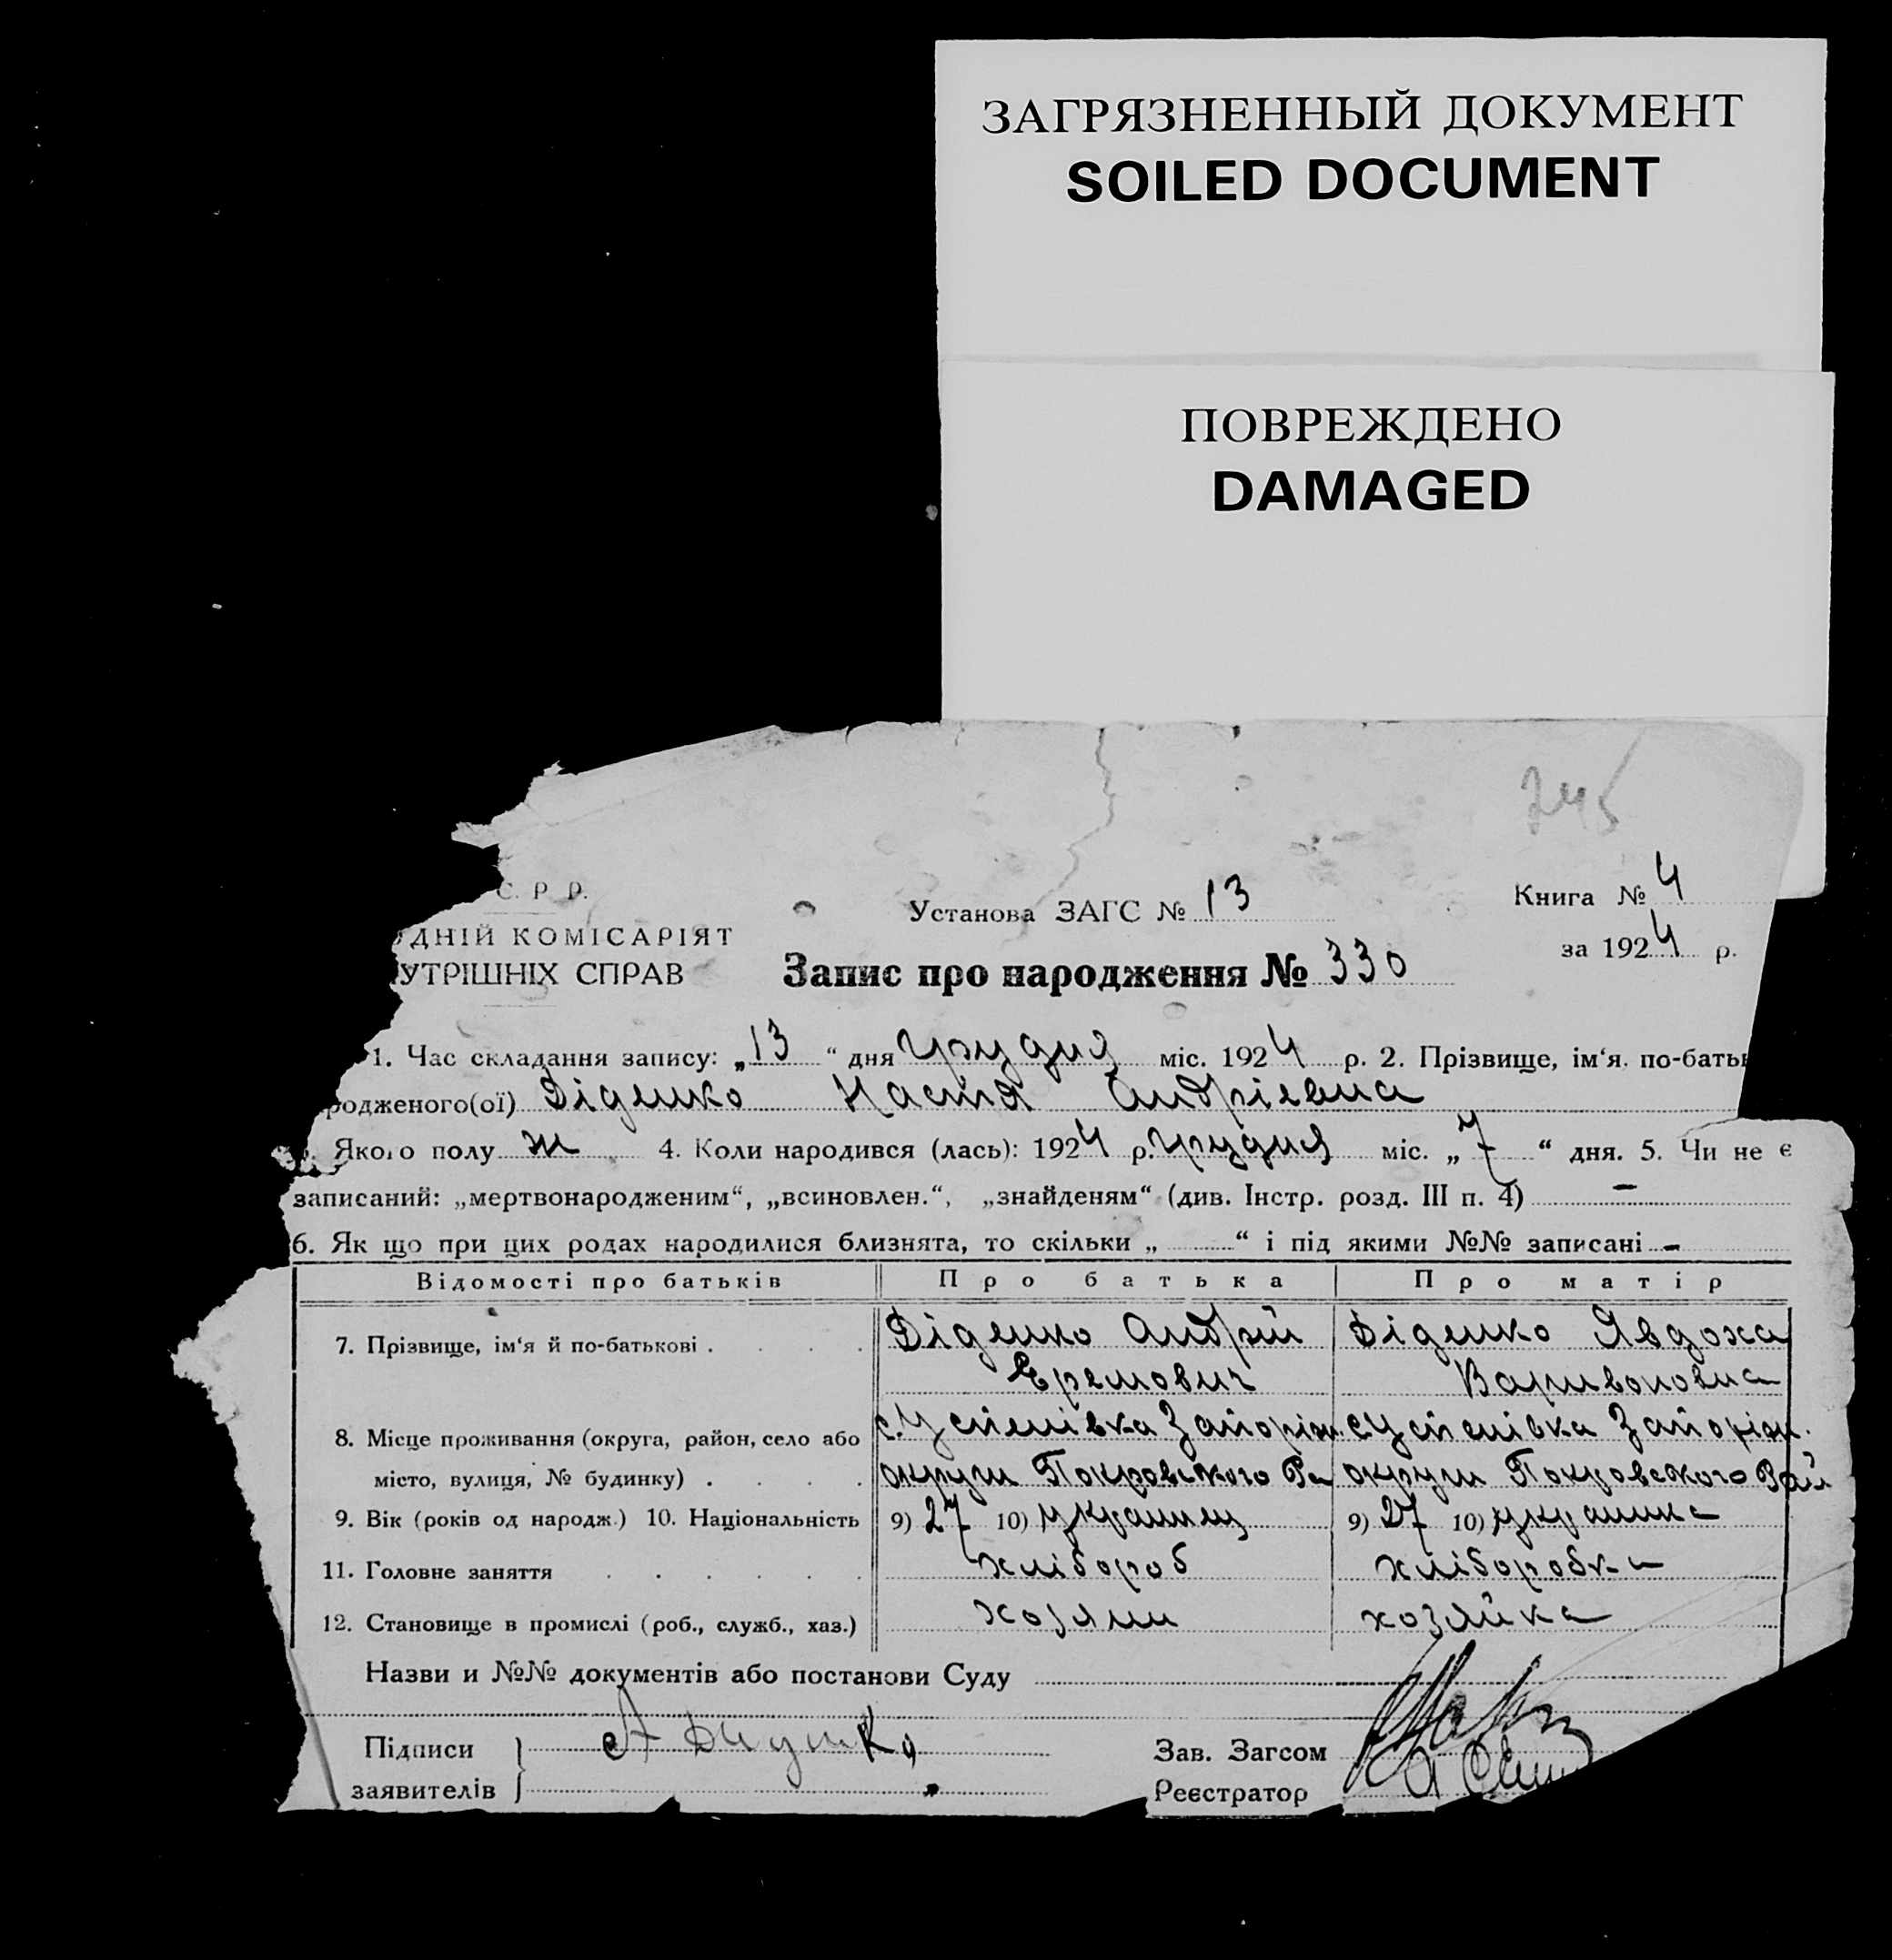 ЗАГРЯЗНЕННЫЙ ДОКУМЕНТ
SOILED DOCUMENT
ПОВРЕЖДЕНО
DAMAGED
745
С. Р. Р.
ДНІЙ КОМІСАРІЯТ
УТРІШНІХ СПРАВ
Установа ЗАГС № 13
Книга № 4
за 1924 р.
Запис про народження № 330
1. Час складання запису: „13“ дня грудня міс. 1924 р. 2. Прізвище, ім‘я. по-бать
родженого(ої) Діденко Настя Андріевна
Якого полу ж 4. Коли народився (лась): 1924 р. грудня міс. „7“ дня. 5. Чи не є
записаний: „мертвонародженим“, „всиновлен.“, „знайденям“ (див. Інстр. розд. III п. 4) —
6. Як що при цих родах народилися близнята, то скільки „ “ і під якими №№ записані —
Відомості про батьків Про батька Про матір
7. Прізвище, ім‘я й по-батькові . . . . Діденко Андрій Діденко Явдоха
Еремович Варивоновна
8. Місце проживання (округа, район, село або с. Успенівка Запоріж. с Успенівка Запоріж.
місто, вулиця, № будинку) . . . . округи Покровського Ра округи Покровського Рай
9. Вік (років од народж.) 10. Національність 9) 27 10) украинец 9) 27 10) украинка
11. Головне заняття . . . . . . хлібороб хліборобка
12. Становище в промислі (роб., служб., хаз.) хозяин хозяйка
Назви и №№ документів або постанови Суду
Підписи
заявителів
А Диденко
Зав. Загсом
Реєстратор